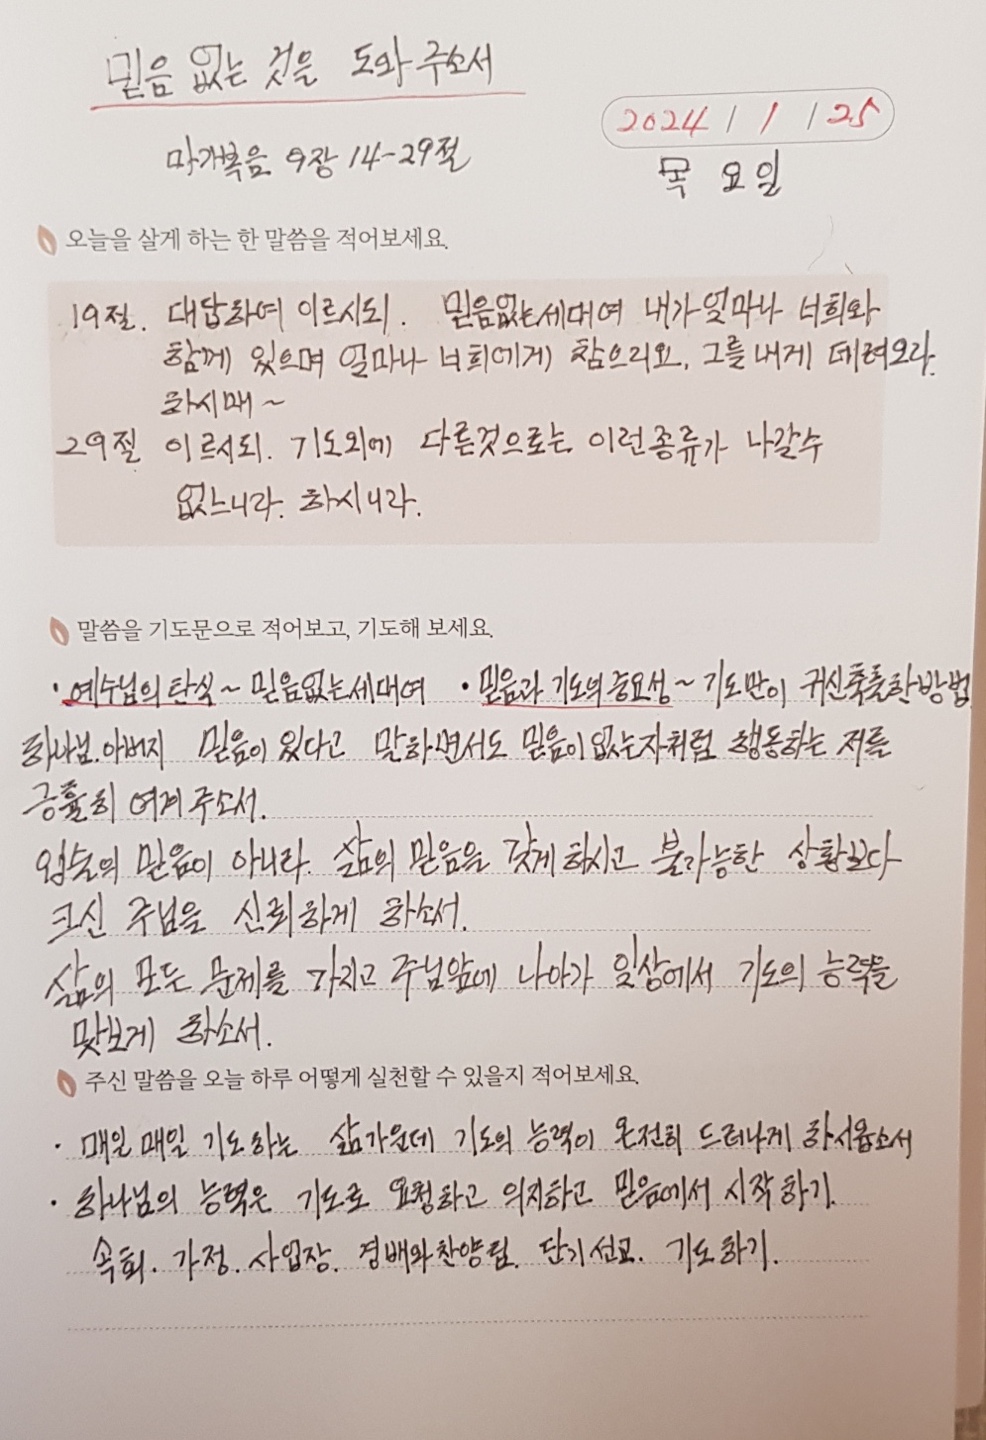 믿음 없는 것을 도와 주소서
2024 / 1 / 25
마가복음 9장 14-29절
목 요일
오늘을 살게 하는 한 말씀을 적어보세요.
19절. 대답하여 이르시되. 믿음없는세대여 내가얼마나 너희와
함께 있으며 얼마나 너희에게 참으리요, 그를 내게 데려오라.
하시매~
29절 이르시되. 기도외에 다른것으로는 이런종류가 나갈수
없느니라. 하시니라.
말씀을 기도문으로 적어보고, 기도해 보세요.
· 예수님의 탄식~ 믿음없는세대여 · 믿음과 기도의 중요성~ 기도만이 귀신축출한방법
하나님.아버지 믿음이 있다고 말하면서도 믿음이없는자처럼 행동하는 저를
긍휼히 여겨주소서.
입술의 믿음이 아니라. 삶의 믿음을 갖게하시고 불가능한 상황보다
크신 주님을 신뢰하게 하소서.
삶의 모든 문제를 가지고 주님앞에 나아가 일상에서 기도의 능력을
맛보게 하소서.
주신 말씀을 오늘 하루 어떻게 실천할 수 있을지 적어보세요.
· 매일 매일 기도하는 삶가운데 기도의 능력이 온전히 드러나게 하시옵소서
· 하나님의 능력은 기도로 요청하고 의지하고 믿음에서 시작하기.
속회. 가정. 사업장. 경배와찬양팀. 단기선교. 기도하기.